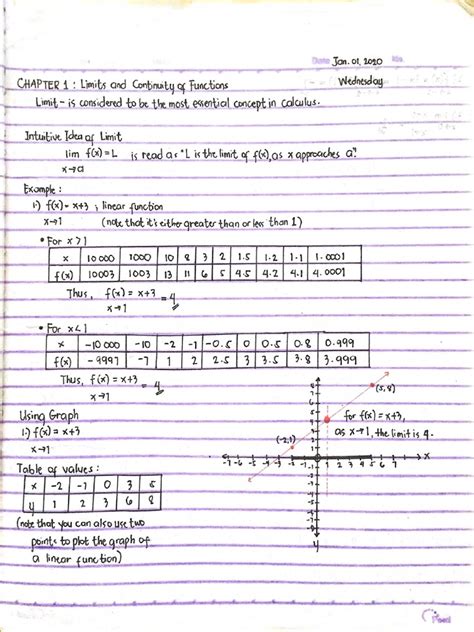 Date Jan. 01, 2020
CHAPTER 1 : Limits and Continuity of Functions Wednesday
Limit - is considered to be the most essential concept in calculus.
Intuitive Idea of Limit
lim f(x) = L is read as "L is the limit of f(x), as x approaches a"
x→a
Example :
1.) f(x) = x+3 ; linear function
x→1 (note that it's either greater than or less than 1)
• For x > 1
x 10 000 1000 10 8 3 2 1.5 1.2 1.1 1.0001
f(x) 10003 1003 13 11 6 5 4.5 4.2 4.1 4.0001
Thus, f(x) = x+3 = 4
x→1
• For x < 1
x -10 000 -10 -2 -1 -0.5 0 0.5 0.8 0.999
f(x) -9997 -7 1 2 2.5 3 3.5 3.8 3.999
Thus, f(x) = x+3 = 4
x→1
Using Graph
1.) f(x) = x+3
x→1
(5,8)
for f(x) = x+3,
as x→1, the limit is 4.
(-2,1)
-7 -6 -5 -4 -3 -2 -1 1 2 3 4 5 6 7 x
y
Table of values :
x -2 -1 0 3 5
y 1 2 3 6 8
(note that you can also use two
points to plot the graph of
a linear function)